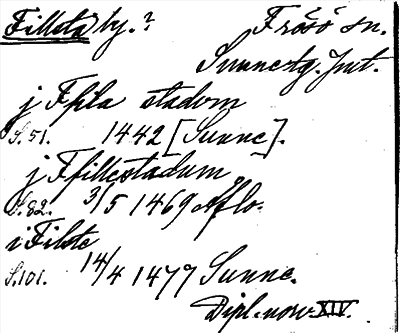 Fillsta by.? Frösö sn.
Sunne tg. Jmt.
j Ffila stadom
S. 51. 1442 [Sunne].
j Ffillestadum
S. 82. 3/5 1469 Aflo.
i Filste
S. 101. 14/4 1477 Sunne.
Dipl. norv. XIV.